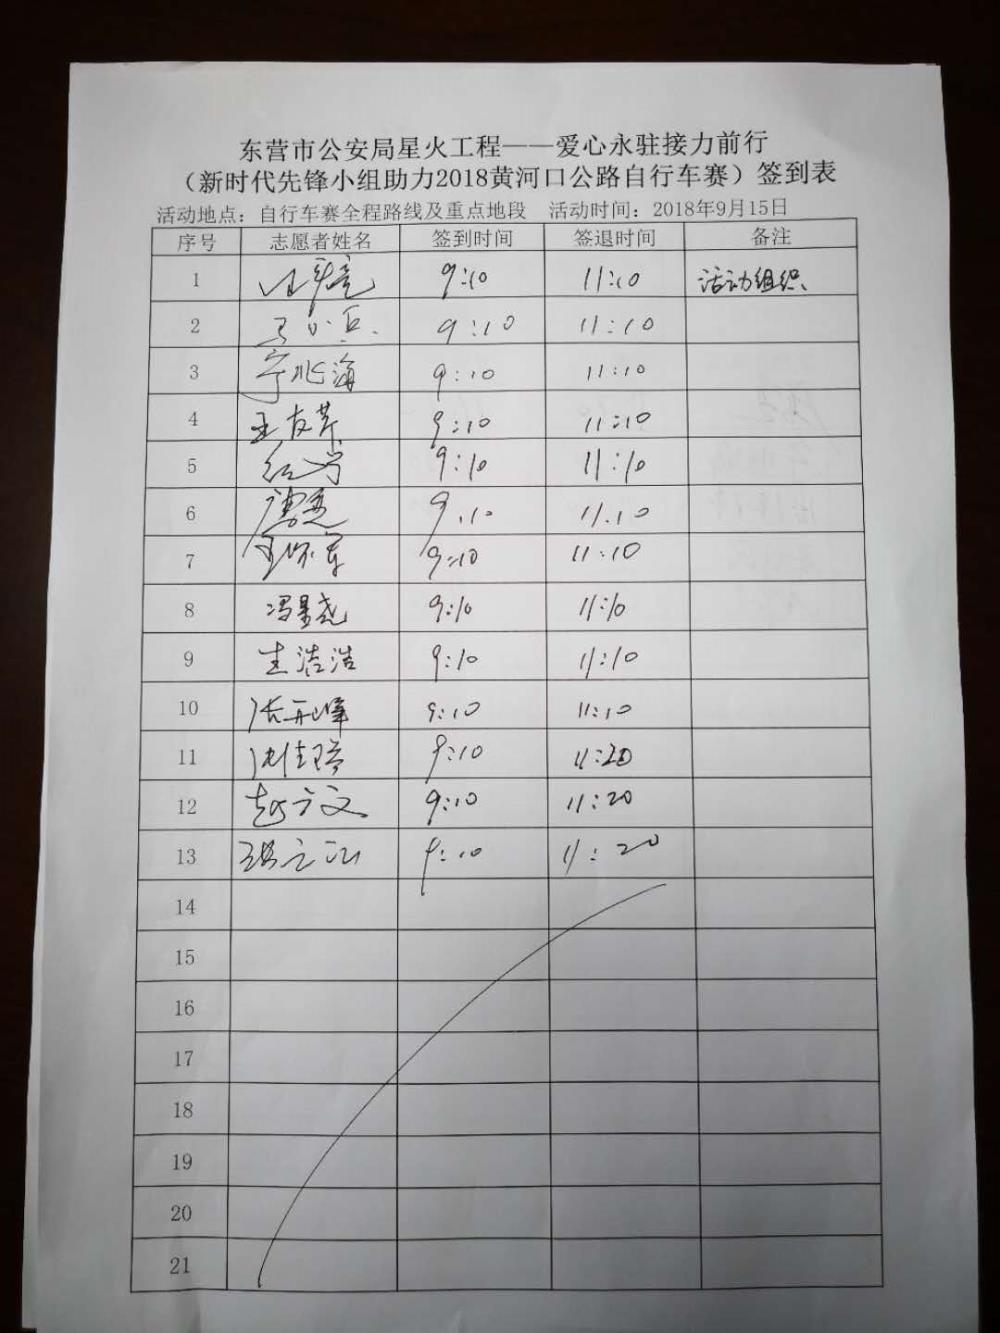 东营市公安局星火工程——爱心永驻接力前行
（新时代先锋小组助力2018黄河口公路自行车赛）签到表
活动地点：自行车赛全程路线及重点地段 活动时间：2018年9月15日
序号 志愿者姓名 签到时间 签退时间 备注
1 9:10 11:10 活动组织
2 9:10 11:10
3 宁兆海 9:10 11:10
4 王友芹 9:10 11:10
5 9:10 11:10
6 9.10 11.10
7 9:10 11:10
8 冯星尧 9:10 11:10
9 浩 9:10 11:10
10 峰 9:10 11:10
11 9:10 11:20
12 赵方文 9:10 11:20
13 9:10 11:20
14
15
16
17
18
19
20
21